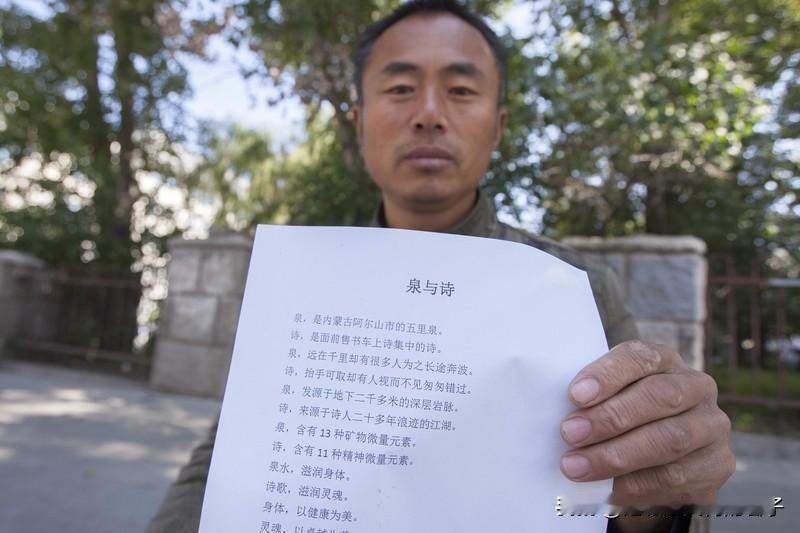 泉与诗
泉，是内蒙古阿尔山市的五里泉。
诗，是面前售书车上诗集中的诗。
泉，远在千里却有很多人为之长途奔波。
诗，抬手可取却有人视而不见匆匆错过。
泉，发源于地下二千多米的深层岩脉。
诗，来源于诗人二十多年浪迹的江湖。
泉，含有13种矿物微量元素。
诗，含有11种精神微量元素。
泉水，滋润身体。
诗歌，滋润灵魂。
身体，以健康为美。
灵魂，以